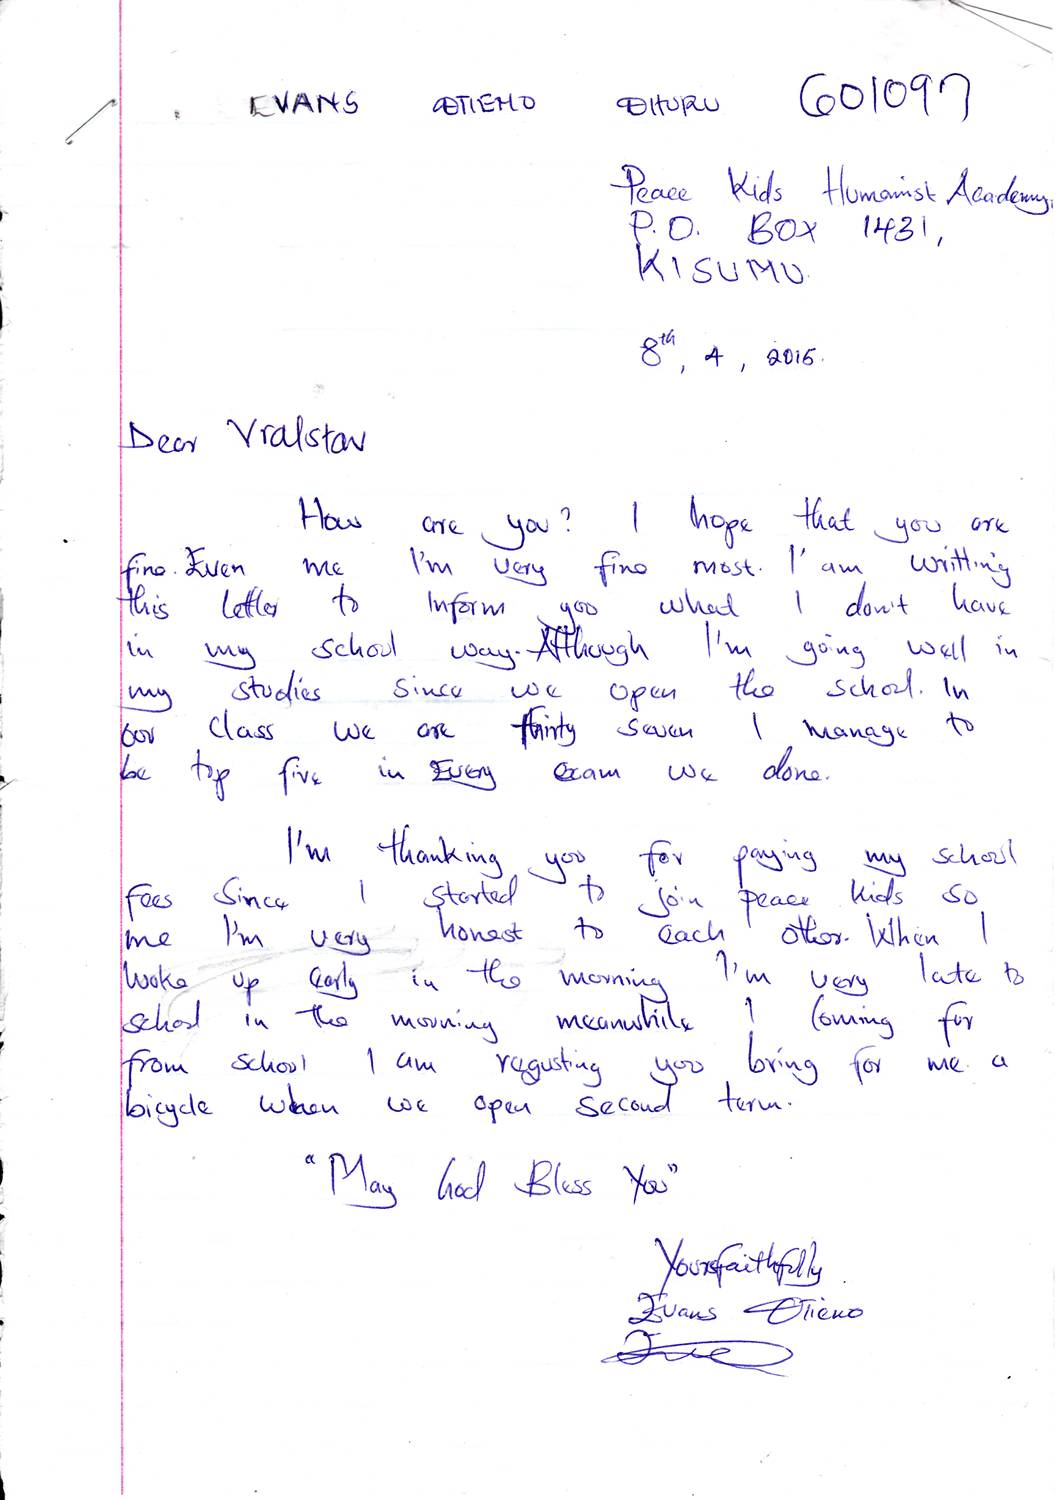 EVANS OTIENO OHURU G01097
Peace Kids Humanist Academy.
P.O. BOX 1431,
KISUMU.
8th, 4, 2015.
Dear Vralstav
How are you? I hope that you are
fine. Even me I'm very fine most. I'am writting
this letter to Inform you what I don't have
in my school way. Although I'm going well in
my studies since we open the school. In
our class we are thirty seven I manage to
be top five in Every exam we done.
I'm thanking you for paying my school
fees since I started to join peace kids so
me I'm very honest to each other. When I
woke up early in the morning I'm very late to
school in the morning meanwhile I coming for
from school I am requsting you bring for me a
bicycle when we open second term.
"May God Bless You"
Yoursfaithfully
Evans Otieno